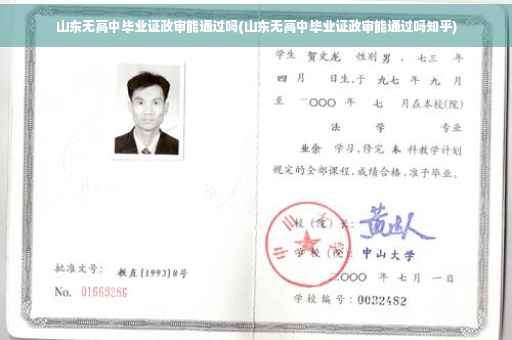 山东无高中毕业证政审能通过吗(山东无高中毕业证政审能通过吗知乎)
学生 贺文龙 性别 男 、七三 年
四 月 日生,于 九七 年 九 月
至 二〇〇〇 年 七 月在本校(院)
法 学 专业
业余 学习,修完 本 科教学计划
规定的全部课程,成绩合格,准予毕业。
校(院)长:
学 校(院): 中山大学
二〇〇〇 年 七 月 一 日
学校编号:0032482
批准文号: 教直[1993]8号
No. 01669286